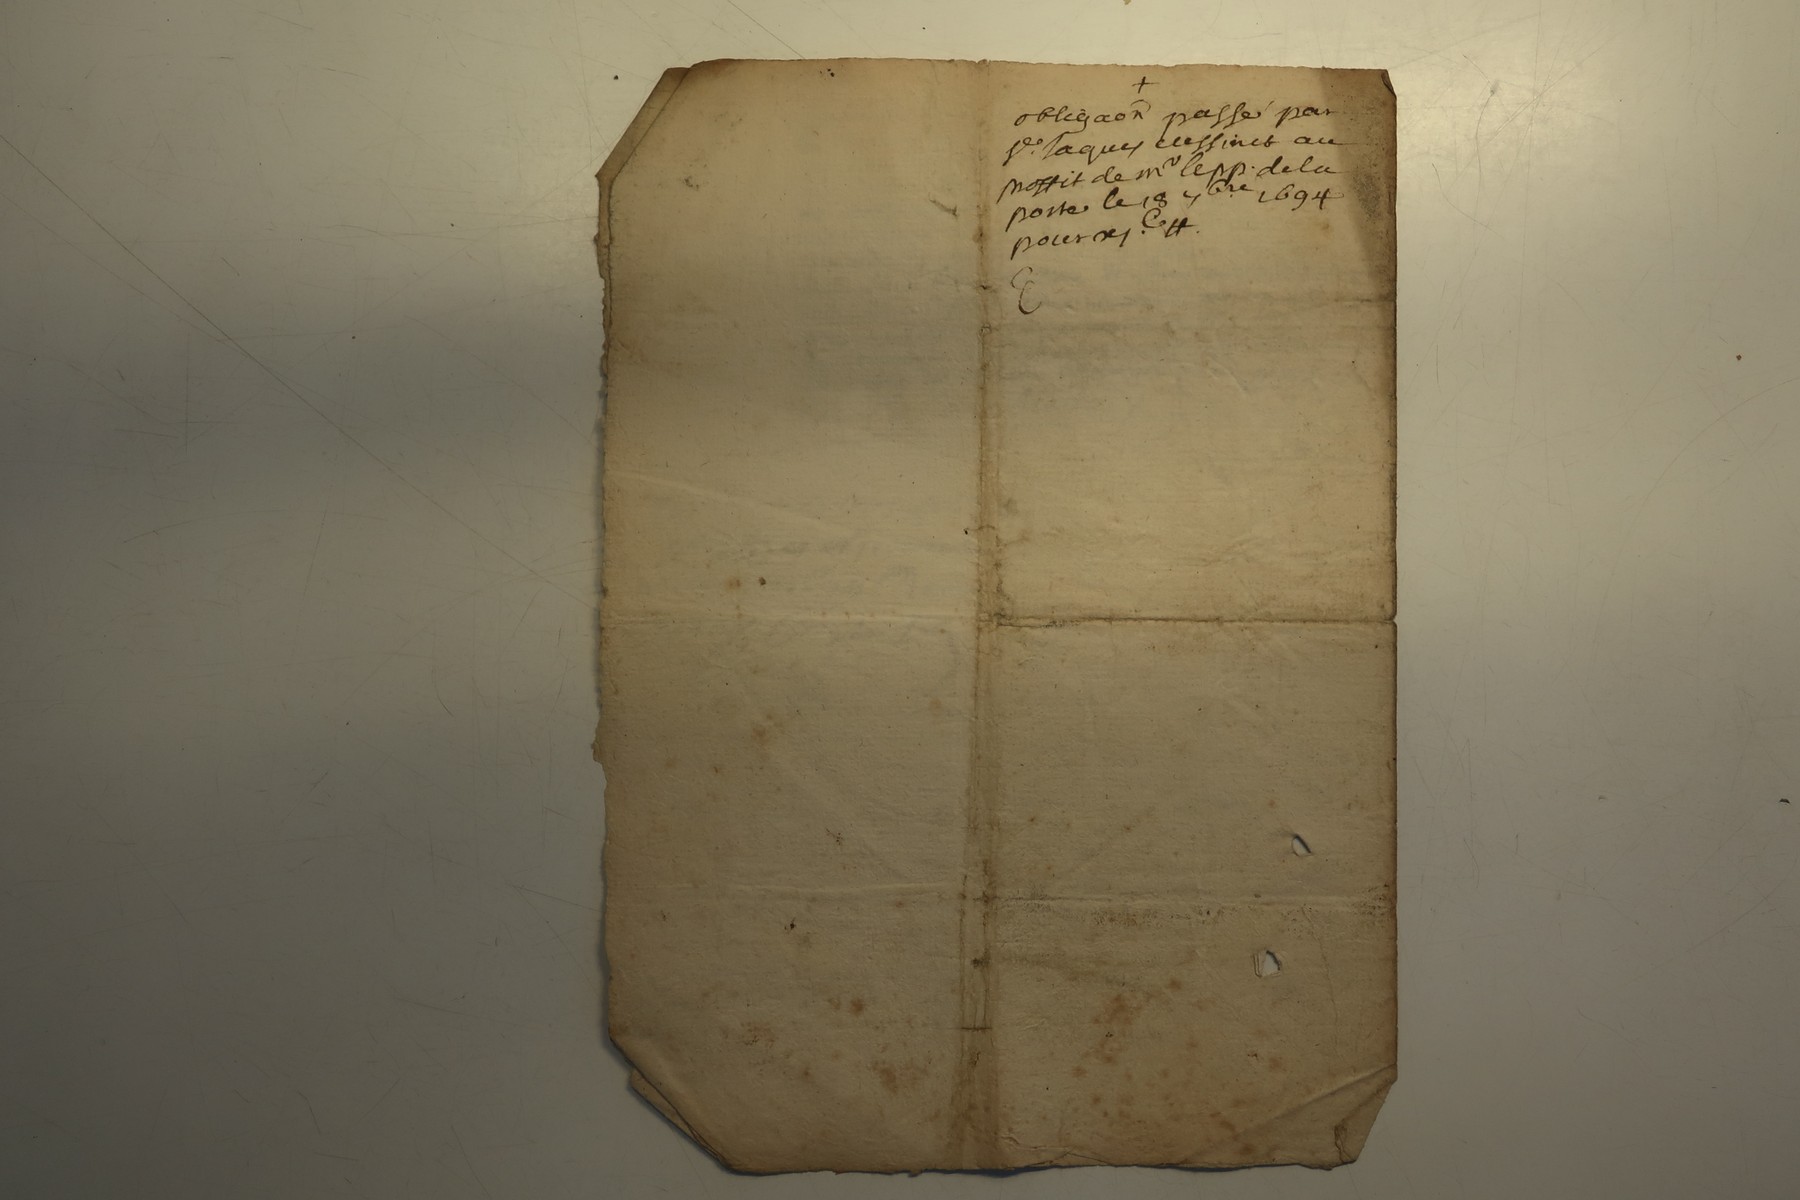 +
obligaon passé par
sr. Jaques cussinet au
proffit de mr le pp. de la
porte le 18 7bre 1694
pour xj C ₶.